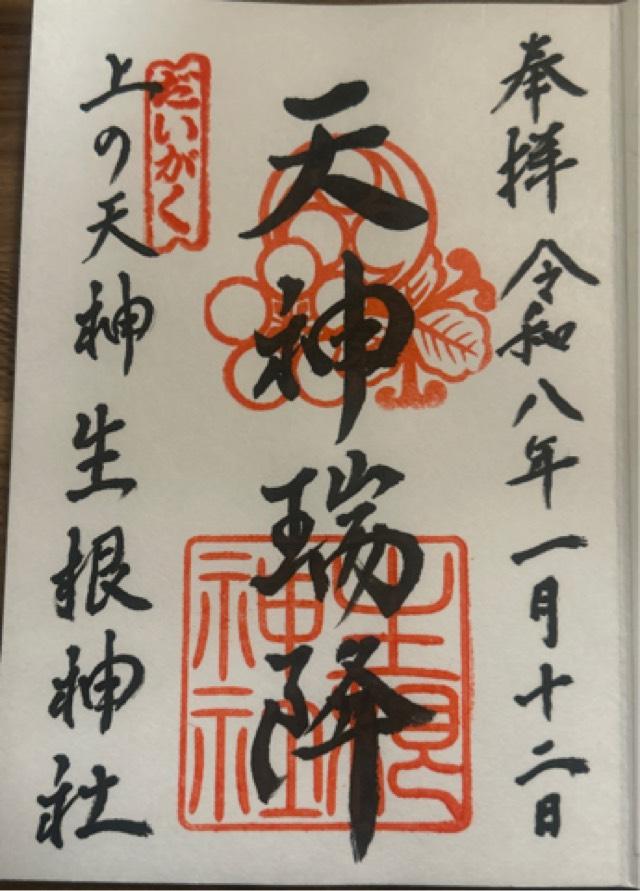 奉拝 令和八年一月十二日
天神瑞降
生根神社
だいがく
上の天神 生根神社